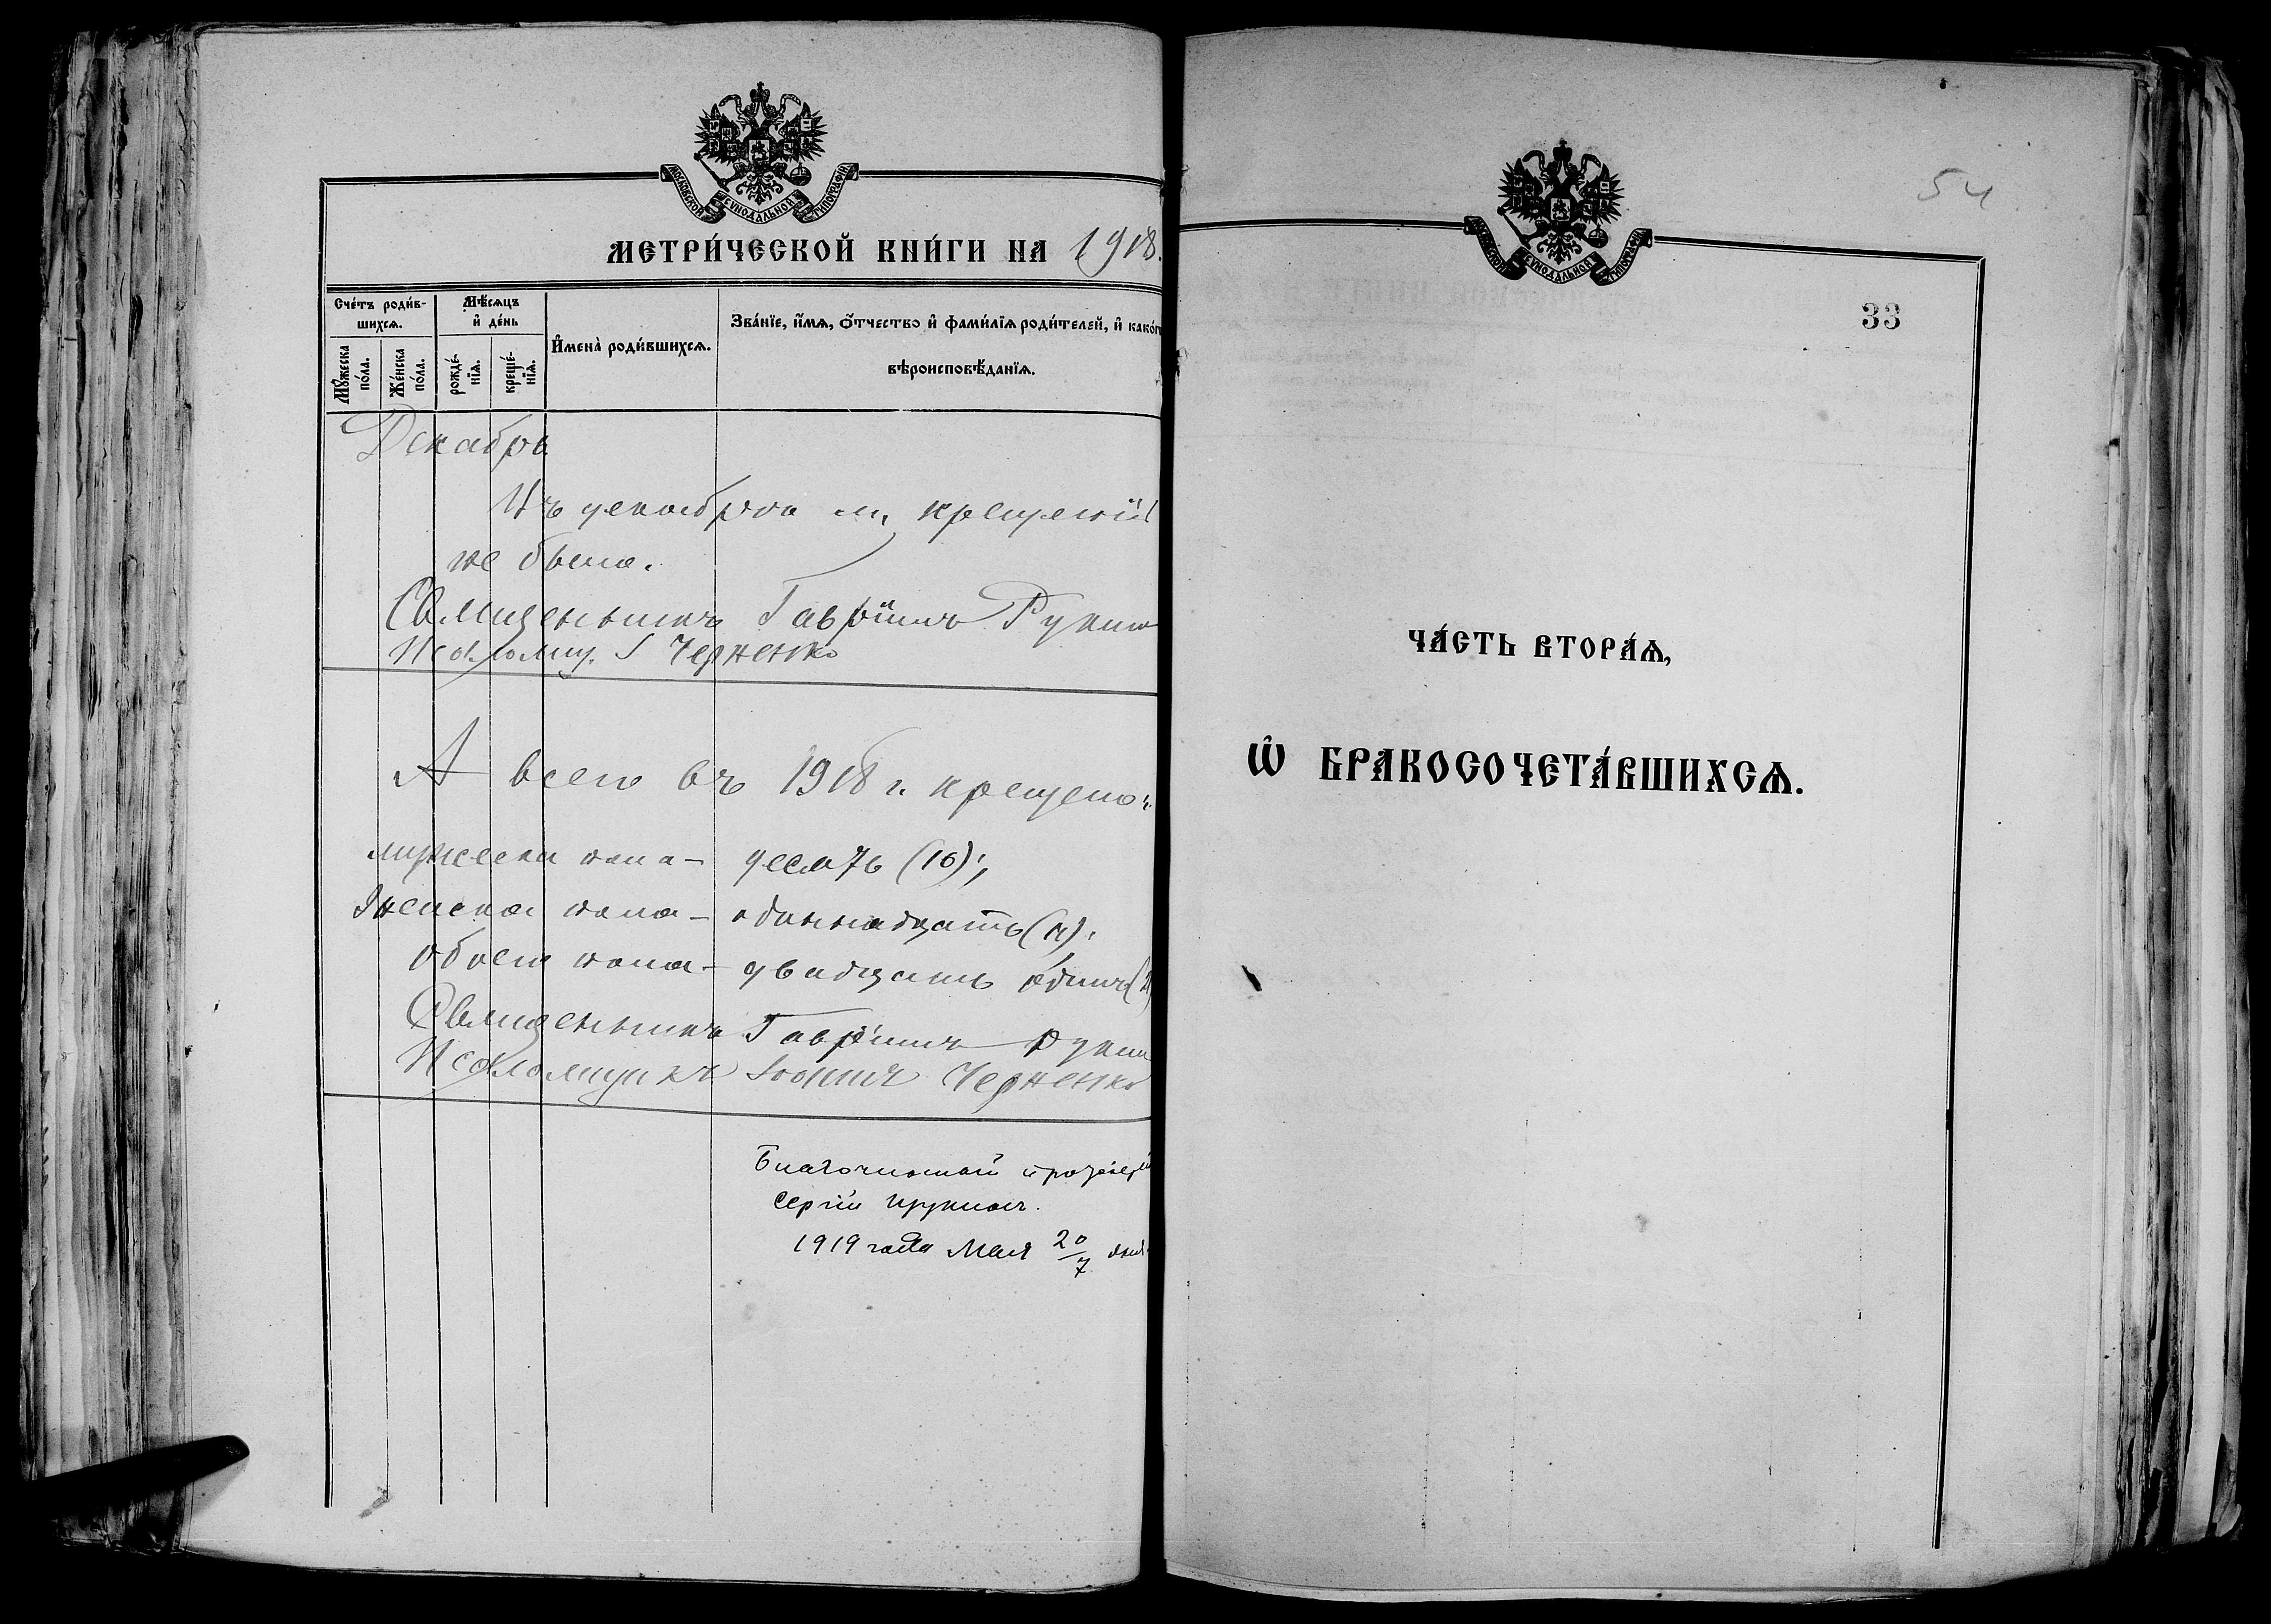 МОСКОВСКОЙ СѴНОДАЛЬНОЙ ТИПОГРАФІИ
МЕТРИ́ЧЕСКОЙ КНИ́ГИ НА 1918.
Сче́тъ роди́в-
шихсѧ.
Мѣ́сѧцъ
и҆ де́нь
И҆мена̀ роди́вшихсѧ.
Зва́нїе, и҆́мѧ, ѻ҆́тчество и҆ фами́лїѧ роди́телей, и҆ како́г
вѣроисповѣ́данїѧ.
Мꙋ́жеска
по́ла.
Же́нска
по́ла.
рожде́-
нїѧ.
креще́-
нїѧ.
Декабрь
Въ декабрѣ м. крещеній
не было.
Священникъ Гавріилъ
Псаломщ. І Черненко
А всего въ 1918 г. крещено:
мужеска пола – десять (10);
женска пола – одиннадцать (11);
обоего пола – двадцать одинъ (2
Священникъ Гавріилъ
Псаломщикъ Іоаннъ Черненко
Благочинный
Сергій
1919 года Мая 20/7 дня
54
МОСКОВСКОЙ СѴНОДАЛЬНОЙ ТИПОГРАФІИ
33
ЧА́СТЬ ВТОРА́Ѧ,
Ѡ҆ БРАКОСОЧЕТА́ВШИХСѦ.